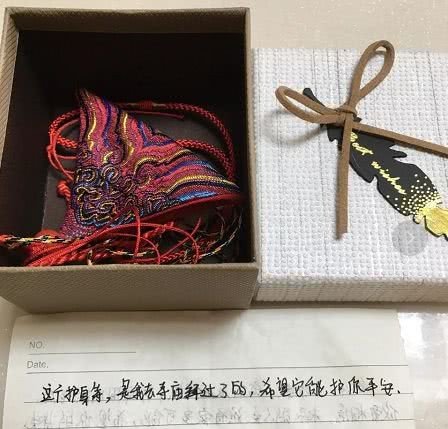 Best wishes
NO.
Date.
这个护身符，是我去寺庙拜过了的，希望它能护你平安.